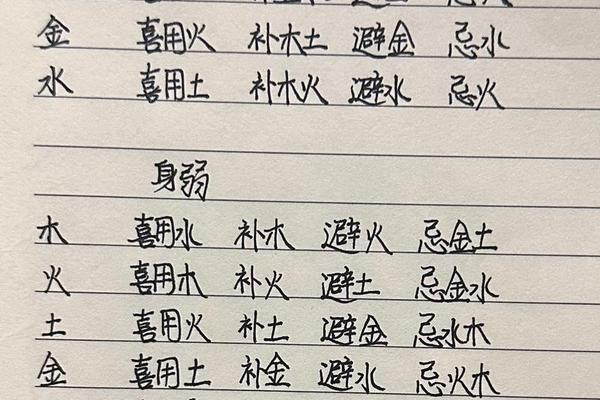 金 喜用火 补木土 避金 忌水
水 喜用土 补木火 避水 忌火
身弱
木 喜用水 补木 避火 忌金土
火 喜用木 补火 避土 忌金水
土 喜用火 补土 避金 忌水木
金 喜用土 补金 避水 忌火木